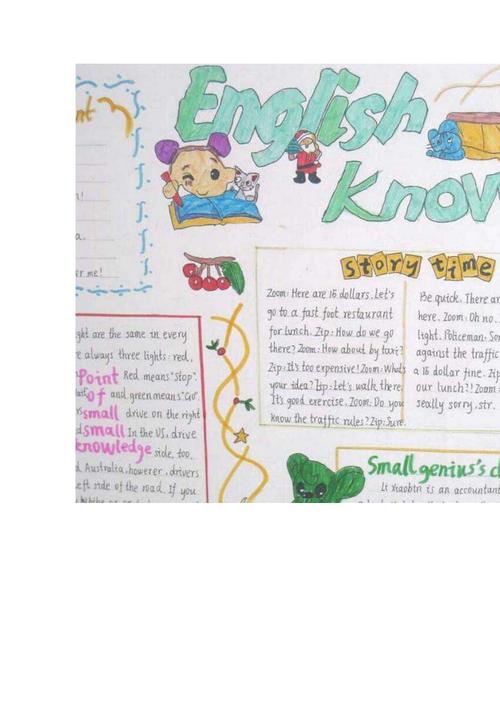 English
Know
nt
!
a.
er me!
story time
Zoom: Here are 15 dollars. Let's
go to a fast foot restaurant
for lunch. Zip: How do we go
there? Zoom: How about by taxi?
Zip: It's too expensive! Zoom: What's
your idea? Zip: Let's walk there.
It's good exercise. Zoom: Do you
know the traffic rules? Zip: Sure.
Be quick. There ar
here. Zoom: Oh no.
light. Policeman: Sor
against the traffic
a 15 dollar fine. Zip
our lunch?! Zoom:
seally sorry, str.
ght are the same in every
e always three lights: red,
Red means "Stop".
and green means "Go".
drive on the right
In the US, drive
side, too.
Australia, however, drivers
eft side of the road. If you
Point
of
small
small
knowledge
Small genius's d
Li Xiaobin is an accountant